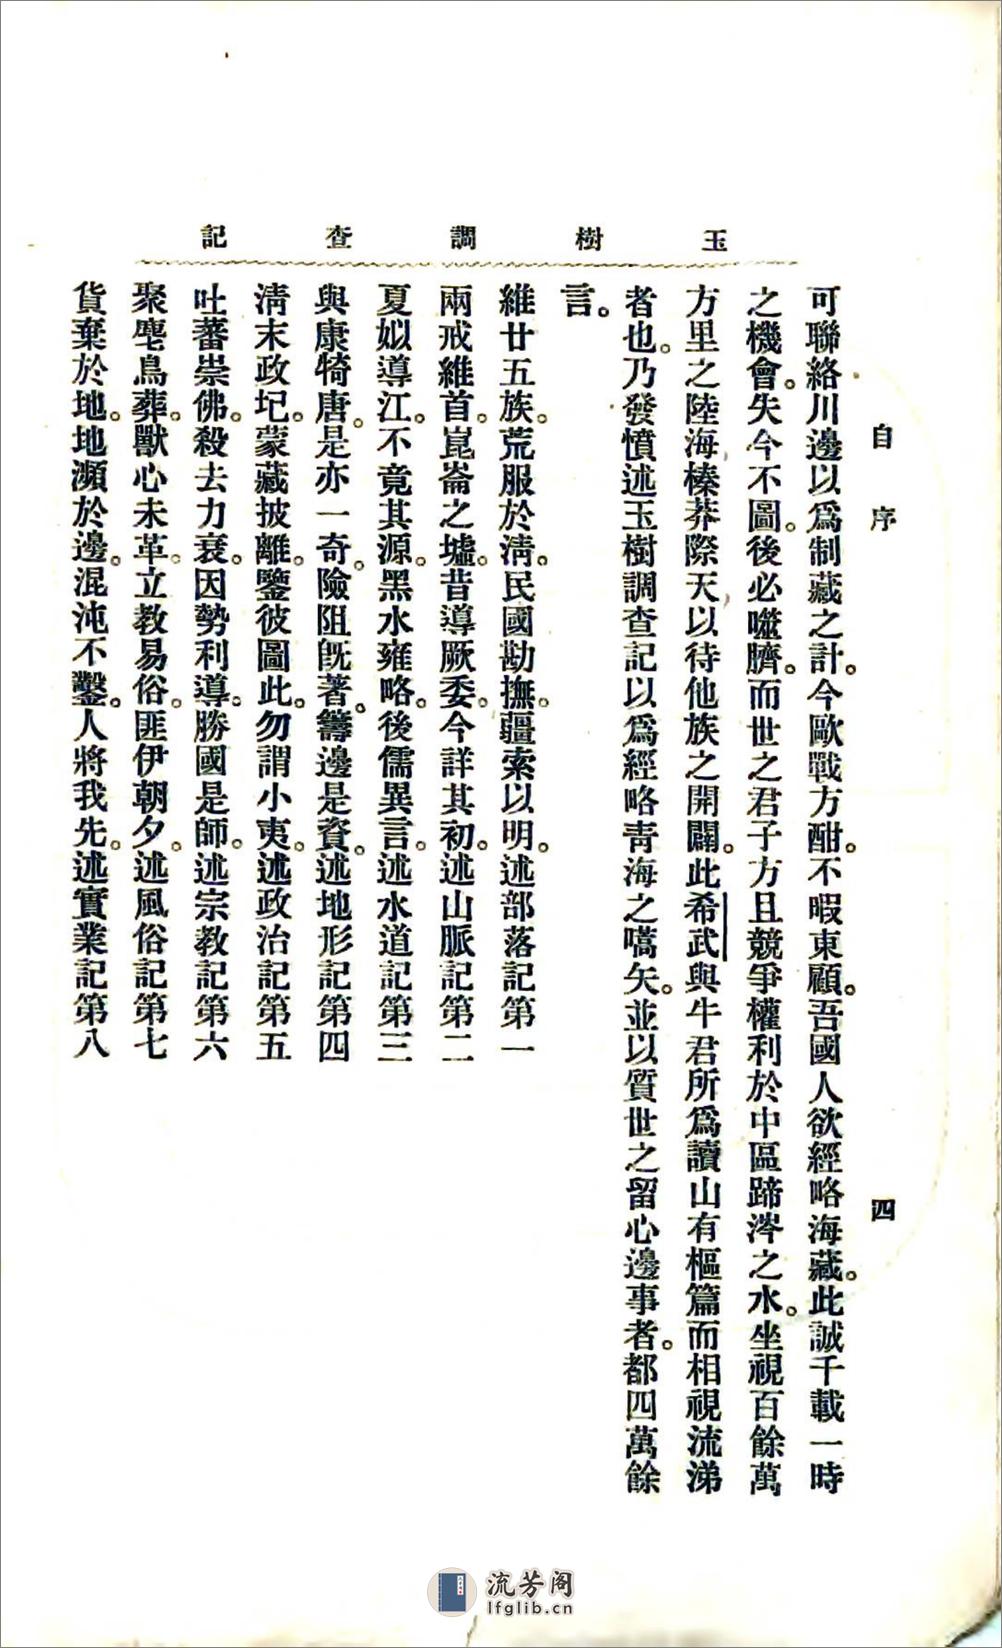 玉樹調查記
自序
四
可聯絡川邊以爲制藏之計。今歐戰方酣。不暇東顧。吾國人欲經略海藏。此誠千載一時
之機會。失今不圖。後必噬臍。而世之君子方且競爭權利於中區蹄涔之水。坐視百餘萬
方里之陸海榛莽際天以待他族之開闢。此希武與牛君所爲讀山有樞篇而相視流涕
者也。乃發憤述玉樹調查記以爲經略靑海之嚆矢。並以質世之留心邊事者。都四萬餘
言。
維廿五族。荒服於淸。民國勘撫。疆索以明。述部落記第一
兩戒維首。崑崙之墟。昔導厥委。今詳其初。述山脈記第二
夏姒導江。不竟其源。黑水雍略。後儒異言。述水道記第三
與康犄唐。是亦一奇。險阻旣著。籌邊是資。述地形記第四
淸末政圮。蒙藏披離。鑒彼圖此。勿謂小夷。述政治記第五
吐蕃崇佛。殺去力衰。因勢利導。勝國是師。述宗教記第六
聚麀鳥葬。獸心未革。立教易俗。匪伊朝夕。述風俗記第七
貨棄於地。地瀕於邊。混沌不鑿。人將我先。述實業記第八
流芳阁
lfglib.cn